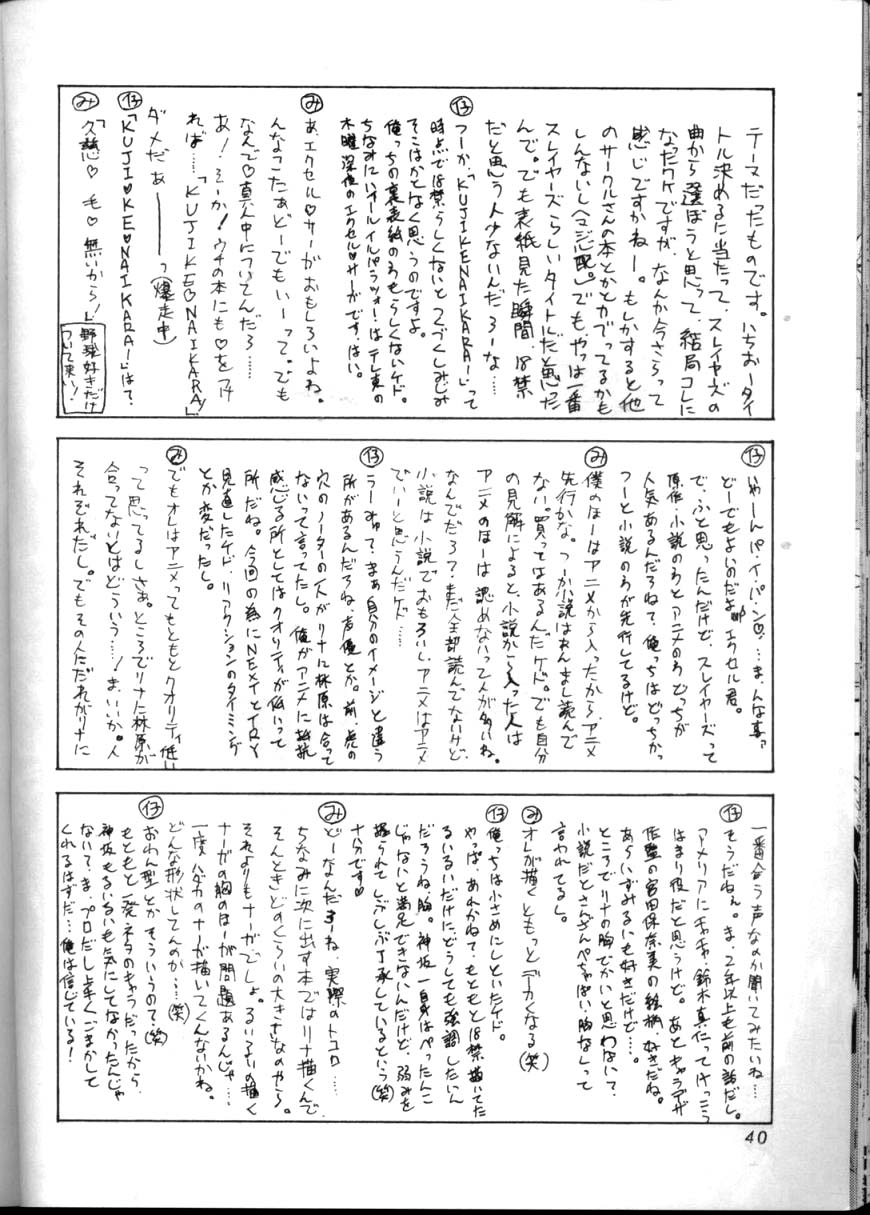 テーマだったものです。いちおータイ
トル決めるに当たって、スレイヤーズの
曲から選ぼうと思って、結局コレに
なったワケですが、なんか今さらって
感じですかねー。もしかすると他
のサークルさんの本とかとカブってるかも
しんないし(マジ心配)。でも、やっぱ一番
スレイヤーズらしいタイトルだと思った
んで。でも表紙見た瞬間 18禁
だと思う人少ないんだろーな……
仔 つーか、「KUJIKENAIKARA!」って
時点で18禁らしくないとつくづくしみじみ
そこはかとなく思うのですよ。
俺っちの裏表紙のわもらしくないケド。
ちなみに「オールイルパラッツォ!」はテレ東の
木曜深夜のエクセル♡サーガです、はい。
み あ、エクセル♡サーガおもしろいよね。
んなこたぁどーでもいーって。でも
なんで♡真ん中についてんだろ……
あ!そーか!ウチの本にも♡をつけ
れば……「KUJIKE♡NAIKARA!」
ダメだぁ━━━っ(爆走中)
仔 「KUJI♡KE♡NAIKARA!」は?
み 「久慈♡毛♡無いから!」
野球好きだけ
ついて来い!
仔 いやーんパ・イ・パ・ン♡……ま、んな事
どーでもよいのだよ エクセル君。
で、ふと思ったんだけど、スレイヤーズって
原作・小説のわとアニメのわ どっちが
人気あるんだろね?俺っちはどっちかっ
つーと小説のわが先行してるけど。
み 僕のほーはアニメから入ったから、アニメ
先行かな。つーか小説はあんまし読んで
ない。買ってはあるんだケド。でも自分
の見解によると、小説から入った人は
アニメのほーは認めないって人が多いね。
なんでだろ?まだ全部読んでないけど、
小説は小説でおもろいし、アニメはアニメ
でいーと思うんだケド……
仔 うーみゅ?まぁ自分のイメージと違う
所があるんだろね、声優とか。前、虎の
穴のノーターの人がリナに林原は合って
ないって言ってたし。俺がアニメに抵抗
感じる所としてはクオリティが低いって
所だね。今回の為にNEXTとTRY
見直したケド、リアクションのタイミング
とか変だったし。
み でもオレはアニメってもともとクオリティ低い
って思ってるしさぁ。ところでリナに林原が
合ってないとはどういう……!ま、いいか。人
それぞれだし。でもその人だれがリナに
一番合う声なのか聞いてみたいね……
仔 そうだねぇ。ま、2年以上も前の話だし。
アメリアにチャチャ、鈴木真仁ってけっこう
はまり役だと思うけど。あとキャラデザ
作監の宮田保奈美の絵柄、好きだね。
あらいずみるいも好きだけど…。
ところでリナの胸でかいと思わない?
小説だとさんざんぺちゃぱい胸なしって
言われてるし。
み オレが描くともっとデカくなる(笑)
仔 俺っちは小さめにしといたケド。
やっぱ、あれかね?もともと18禁描いてた
るいるいだけに、どうしても強調したいん
だろうね、胸。神坂一自身はぺったんこ
じゃないと満足できないんだけど、弱みを
握られてしぶしぶ了承しているという(笑)
十分です♡
み どーなんだろーね、実際のトコロ……
ちなみに次に出す本ではリナ描くんで、
そんときどのくらいの大きさなのやら。
それよりもナーガでしょ。るいるいの描く
ナーガの胸のほーが問題あるんじゃ……
一度ハダカのナーガ描いてくんないかね。
どんな形状してんのか……(笑)
仔 おわん型とかそういうので(笑)
もともと一発ネタのキャラだったから、
神坂もるいるいも気にしてなかったんじゃ
ないて、ま、プロだし上手くごまかして
くれるはずだ…俺は信じている!
40